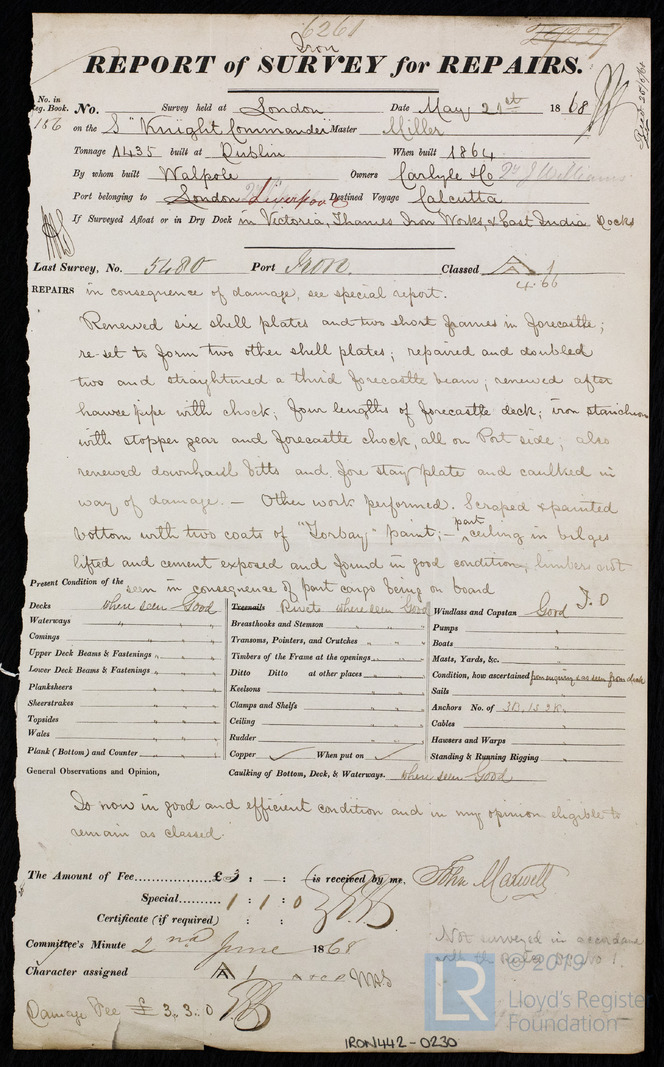 6261
Iron
REPORT of SURVEY for REPAIRS.
No. in Reg. Book. No. Survey held at London Date May 21st 1868
186 on the S "Knight Commander" Master Miller
Tonnage 1435 built at Dublin When built 1864
By whom built Walpole Owners Carlyle & Co
Port belonging to London Liverpool Destined Voyage Calcutta
If Surveyed Afloat or in Dry Dock in Victoria, Thames Iron Works, & East India Docks
Last Survey, No. 5480 Port Iron. Classed A 1
4.66
REPAIRS in consequence of damage, see special report.
Renewed six shell plates and two short frames in forecastle;
re-set to form two other shell plates; repaired and doubled
two and straightened a third forecastle beam; renewed after
hawse pipe with chock; four lengths of forecastle deck; iron stanchion
with stopper gear and forecastle chock, all on Port side; also
renewed downhaul bitts and fore stay plate and caulked in
way of damage. — Other work performed. Scraped & painted
bottom with two coats of "Torbay" paint; — part ceiling in bilges
lifted and cement exposed and found in good condition, limbers not
seen in consequence of part cargo being on board
Present Condition of the
Decks where seen Good
Waterways " "
Comings " "
Upper Deck Beams & Fastenings " "
Lower Deck Beams & Fastenings " "
Planksheers " "
Sheerstrakes " "
Topsides " "
Wales " "
Plank (Bottom) and Counter " "
Treenails Rivets where seen Good
Breasthooks and Stemson " "
Transoms, Pointers, and Crutches " "
Timbers of the Frame at the openings " "
Ditto Ditto at other places " "
Keelsons " "
Clamps and Shelfs " "
Ceiling " "
Rudder " "
Copper When put on
Windlass and Capstan Good
Pumps "
Boats "
Masts, Yards, &c. "
Condition, how ascertained from enquiry & as seen from deck
Sails "
Anchors No. of 3B, 1S, 2K,
Cables "
Hawsers and Warps "
Standing & Running Rigging "
General Observations and Opinion, Caulking of Bottom, Deck, & Waterways. where seen Good
Is now in good and efficient condition and in my opinion eligible to
remain as classed.
The Amount of Fee £5 : — : is received by me, John Maxwell
Special 1 : 1 : 0
Certificate (if required) : :
Committee's Minute 2nd June 1868
Character assigned A 1
Damage Fee £ 3,, 3. 0
Not surveyed in accordance
with the Rules
© 2019
LR
Lloyd's Register
Foundation
IRON442-0230